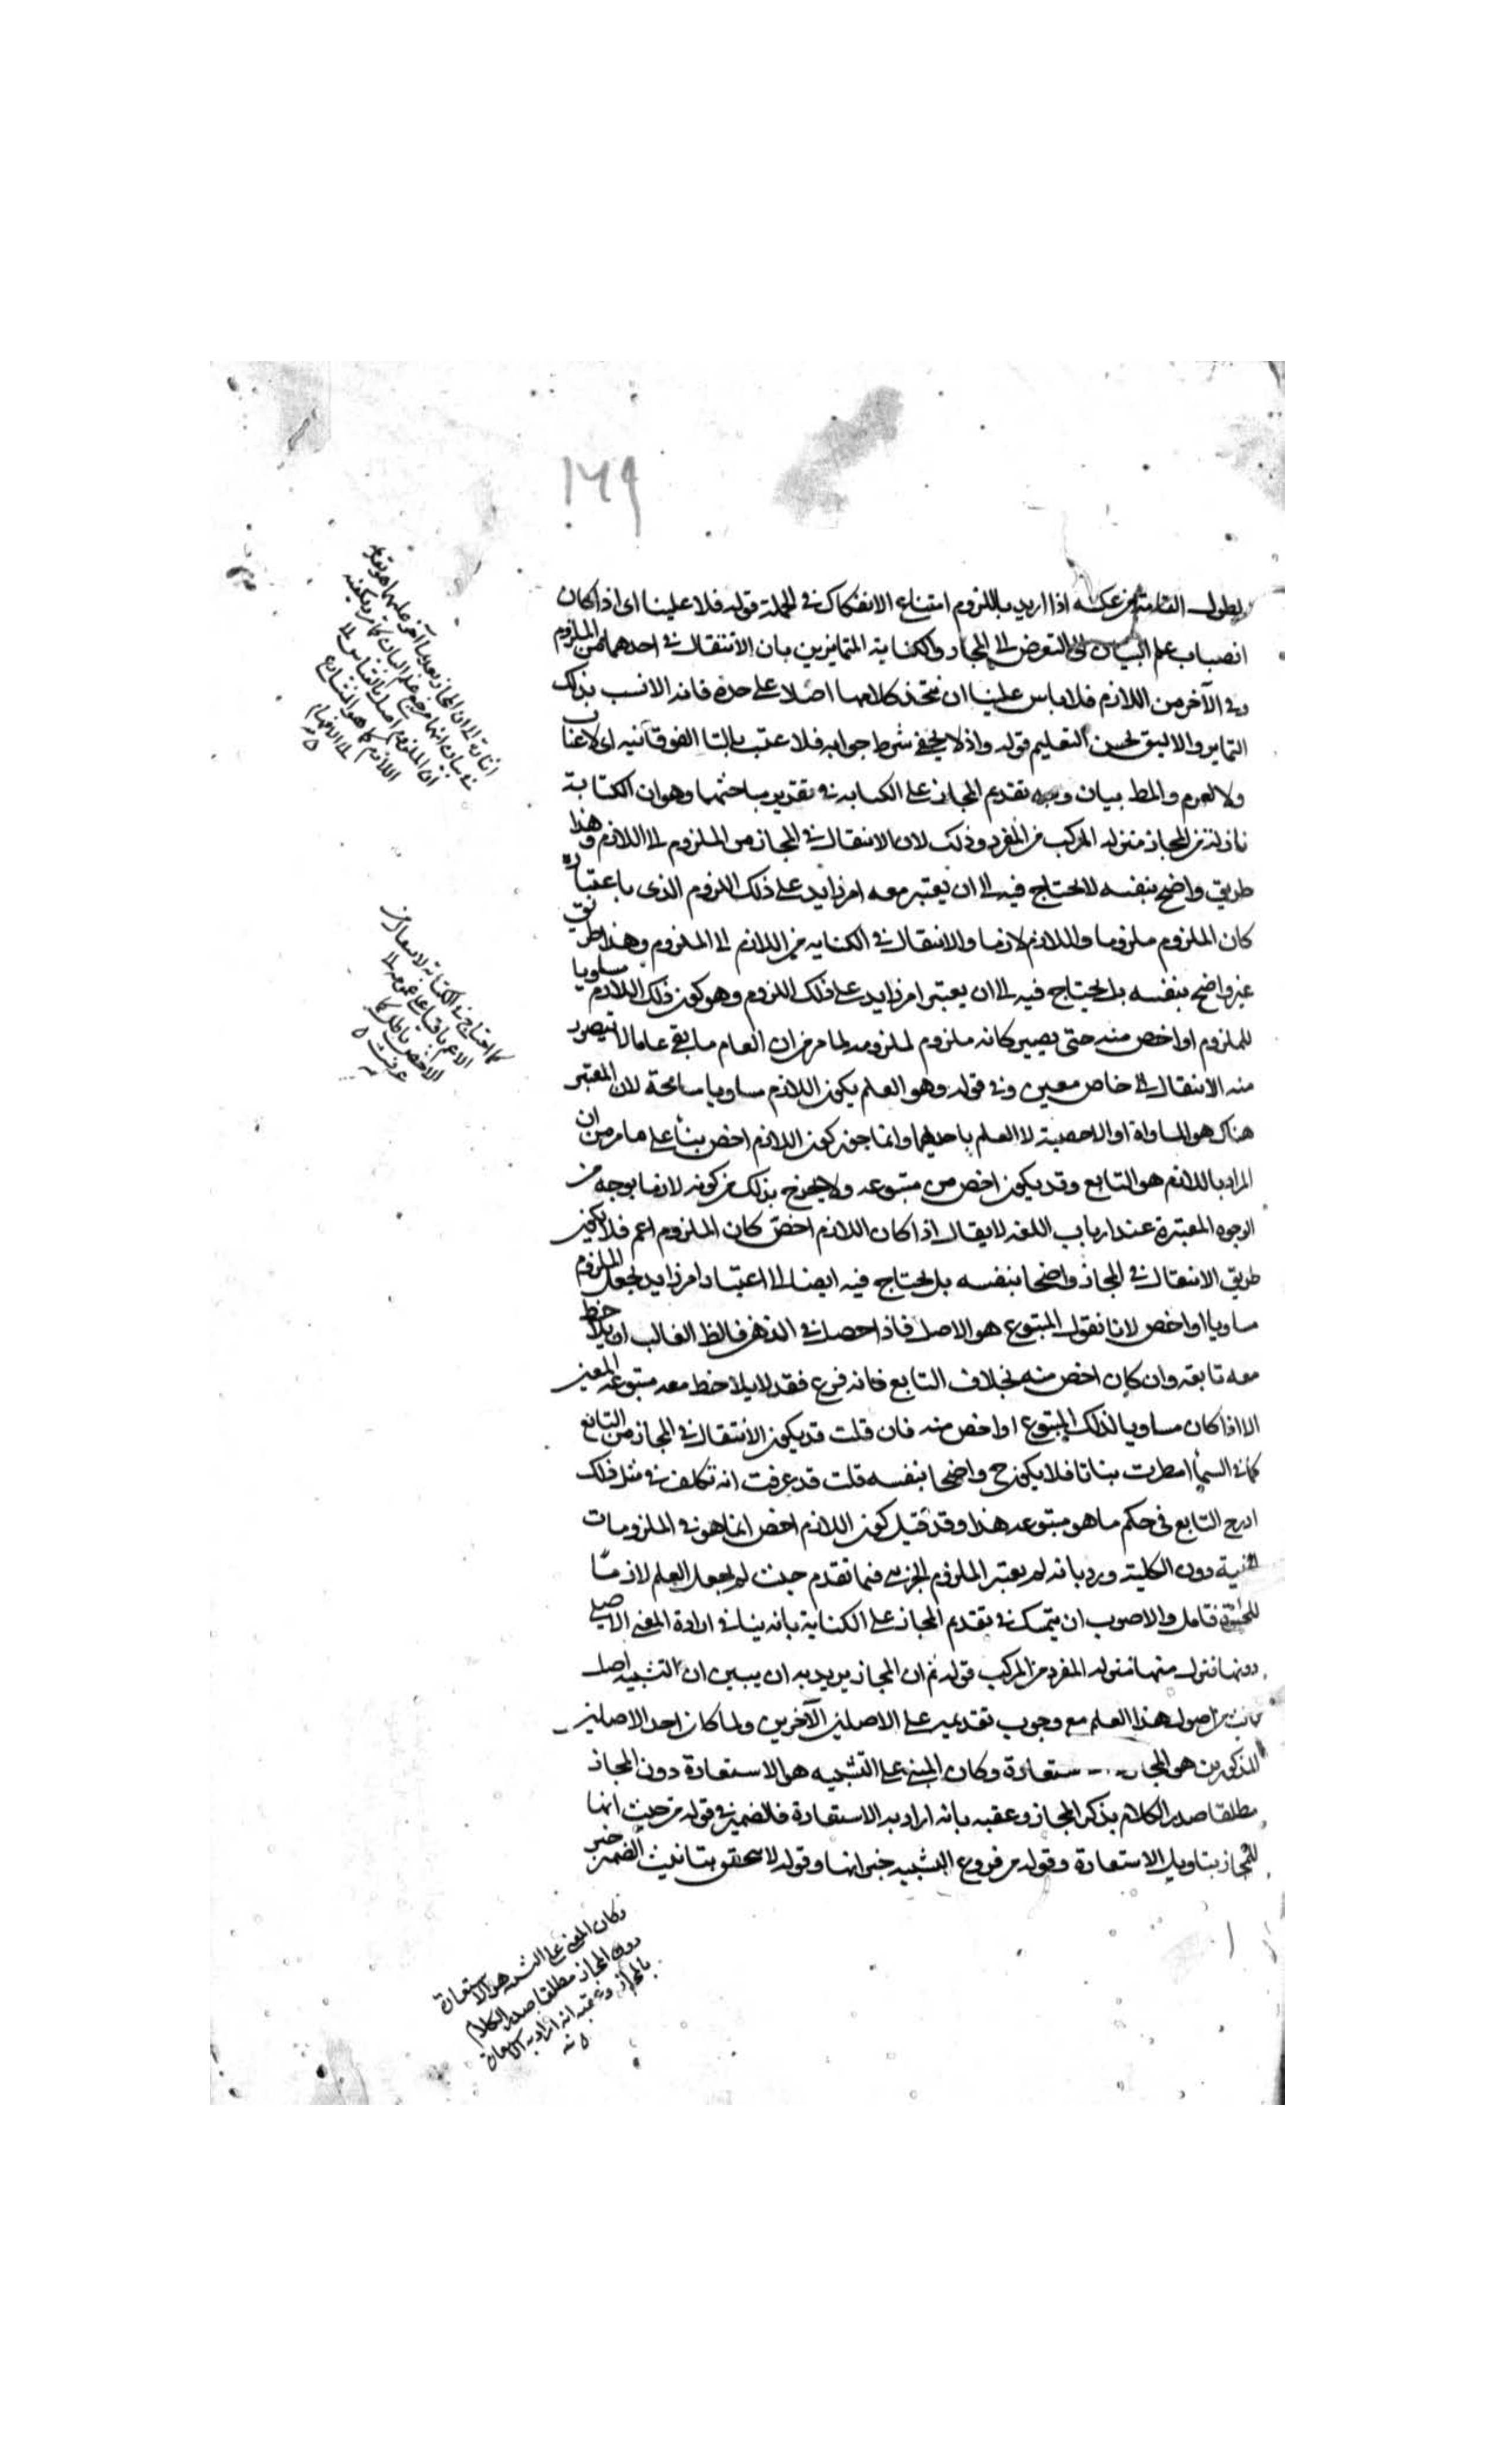 ١٦٩
لطول القامة من عكسه اذا اريد باللزوم امتناع الانفكاك في الجملة قوله فلا علينا اى اذا كان
انصباب علم البيان الى التعرض الى المجاز والكناية المتمايزين بان الانتقال في احدهما من الملزوم
وفي الآخر من اللازم فلا باس علينا ان نتخذ كلامها اصلا على حدة فانه الانسب بذلك
التمايز والاليق لحسن التعليم قوله واذ لا يخفى شرط جوابه فلا عتب بالتا الفوقانيه اى لا عتاب
ولا لوم والمط بيان وجه تقديم المجاز على الكنايه في تقدير مباحثهما وهو ان الكناية
نازلة من المجاز منزلة المركب من المفرد وذلك لان الانتقال في المجاز من الملزوم الى اللازم وهذا
طريق واضح بنفسه لا يحتاج فيه الى ان يعتبر معه امر زايد على ذلك اللزوم الذى باعتباره
كان الملزوم ملزوما واللازم لازما والانتقال في الكنايه من اللازم الى الملزوم وهذا طريق
غير واضح بنفسه بل يحتاج فيه الى ان يعتبر امر زايد على ذلك اللزوم وهو كون ذلك اللازم مساويا
للملزوم او اخص منه حتى يصير كانه ملزوم لملزومه لما مر من ان العام ما بقى عاما لا يتصور
منه الانتقال الى خاص معين وفي قوله وهو العلم بكون اللازم مساويا مسامحة لان المعتبر
هناك هو المساواة او الاخصية لا العلم باحديهما وانما جوز كون اللازم اخص بناء على ما مر من ان
المراد باللازم هو التابع وقد يكون اخص من متبوعه ولا يخرج بذلك من كونه لازما بوجه من
الوجوه المعتبرة عند ارباب اللغه لا يقال اذا كان اللازم اخص كان الملزوم اعم فلا يكون
طريق الانتقال في المجاز واضحا بنفسه بل يحتاج فيه ايضا الى اعتبار امر زايد يجعل الملزوم
مساويا او اخص لانا نقول المتبوع هو الاصل فاذا حصل في الذهن فالظ الغالب ان يلاحظ
معه تابعه وان كان اخص منه بخلاف التابع فانه فرع فقد لا يلاحظ معه متبوعه المعين
الا اذا كان مساويا لذلك المتبوع او اخص منه فان قلت قد يكون الانتقال في المجاز من التابع
كما في السماء امطرت نباتا فلا يكون ح واضحا بنفسه قلت قد عرفت انه تكلف في مثل ذلك
ادرج التابع في حكم ما هو متبوعه هذا وقد قيل كون اللازم اخص انما هو في الملزومات
دون الكلية ورد بانه لم يعتبر الملزوم الجزئى فيما تقدم حيث لم يجعل العلم لازما
فتامل والاصوب ان يتمسك في تقديم المجاز على الكناية بانه ينافى ارادة المعنى الاصلى
دونها فنزل منها منزلة المفرد من المركب قوله ثم ان المجاز يريد به ان يبين ان التشبيه اصل
من اصول هذا العلم مع وجوب تقديمه على الاصلين الآخرين ولما كان احد الاصلين
المذكورين هو المجاز ستعارة وكان المبنى على التشبيه هو الاستعارة دون المجاز
مطلقا صدر الكلام بذكر المجاز وعقبه بانه اراد به الاستعارة فالضمير في قوله من حيث انها
للمجاز بتاويل الاستعارة وقوله من فروع التشبيه خبر انها وقوله لا يتحقق بتانيث الضمير خبر
اللازم كما هو الشايع
كما احتاج في الكناية
عرفت
وكان المبنى على التشبيه هو الاستعارة
دون المجاز مطلقا صدر الكلام
بالمجاز وعقبه انه اراد به الاستعارة